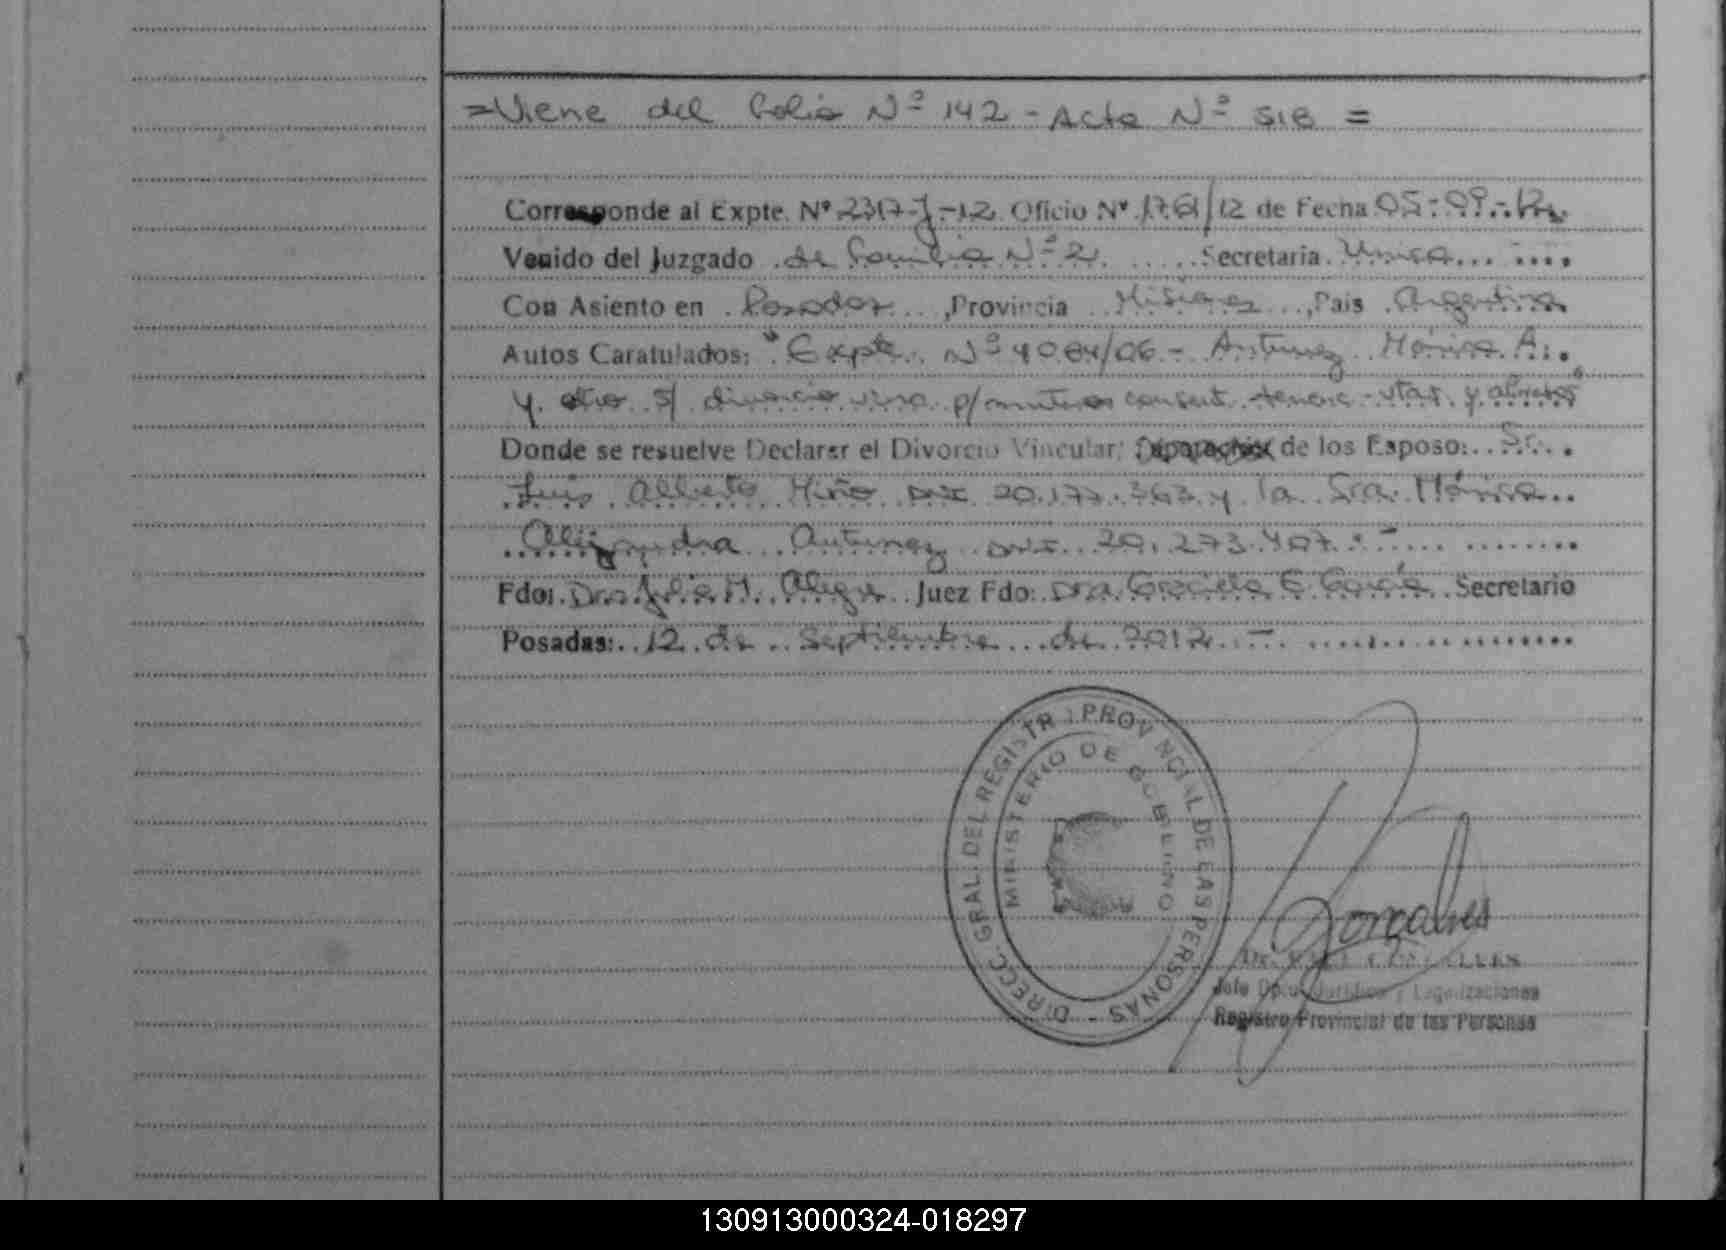 =Viene del folio Nº 142 - Acta Nº 51B =
Corresponde al Expte. Nº 2317-J-12 Oficio Nº 1761/12 de Fecha 05-09-12
Venido del Juzgado de Familia Nº 2 Secretaria Unica
Con Asiento en Posadas, Provincia Misiones, Pais Argentina
Autos Caratulados: "Expte. Nº 4084/06 - Antunez Mónica A.
y otro s/ divorcio vinc. p/mutuo consent. - tenenc - vtas. y alimentos"
Donde se resuelve Declarar el Divorcio Vincular; Separacion de los Esposo: Sr.
Luis Alberto Miño DNI 20.177.363 y la Sra. Mónica
Alejandra Antunez DNI 20.273.407.-
Fdo: Dr. Julio M. Alegre Juez Fdo: Dra. Graciela E. García Secretario
Posadas: 12 de Septiembre de 2012 -
DIRECC. GRAL. DEL REGISTRO PROVINCIAL DE LAS PERSONAS -
MINISTERIO DE GOBIERNO
Goncalves
Jefe Dpto. Juridico y Legalizaciones
Registro Provincial de las Personas
130913000324-018297